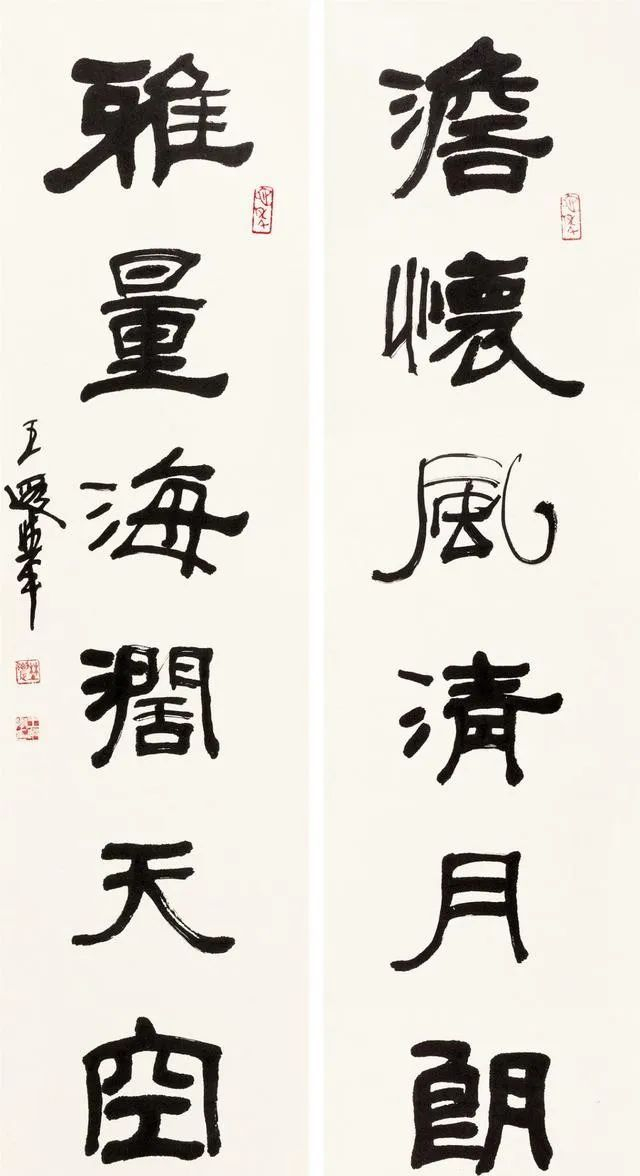 澹懷風清月朗
雅量海濶天空
王遐舉